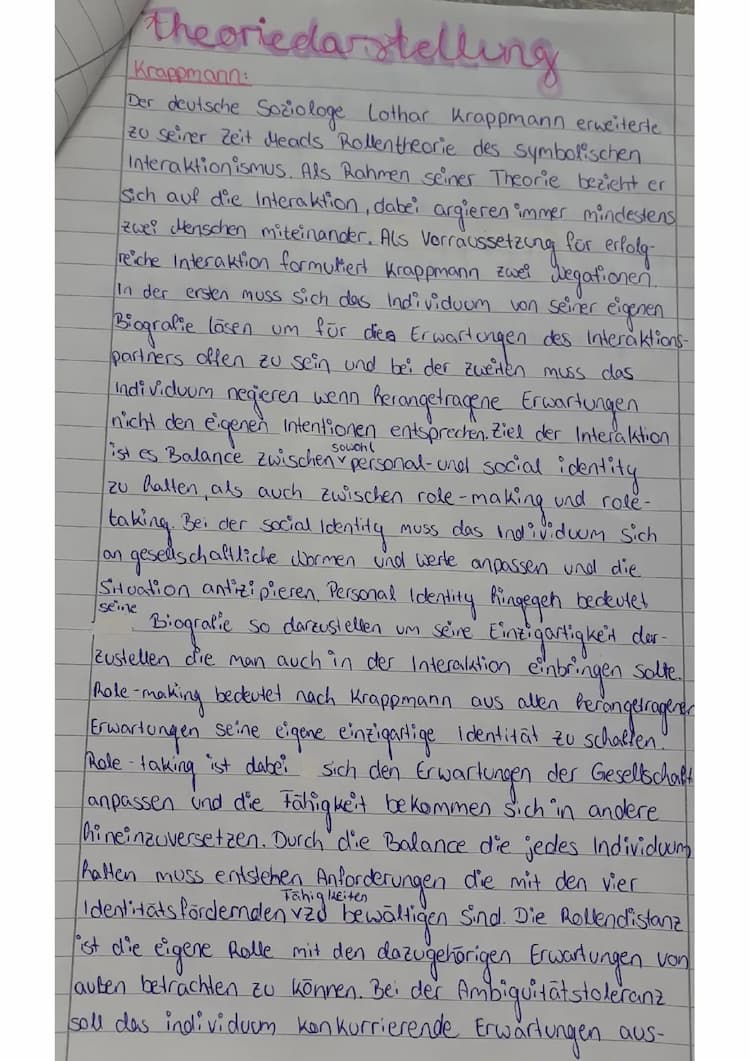 Theoriedarstellung
Krappmann:
Der deutsche Soziologe Lothar Krappmann erweiterte
zu seiner Zeit Meads Rollentheorie des symbolischen
Interaktionismus. Als Rahmen seiner Theorie bezieht er
sich auf die Interaktion, dabei argieren immer mindestens
zwei Menschen miteinander. Als Vorraussetzung für erfolg-
reiche Interaktion formuliert Krappmann zwei Negationen.
In der ersten muss sich das Individuum von seiner eigenen
Biografie lösen um für die Erwartungen des Interaktions-
partners offen zu sein und bei der zweiten muss das
Individuum negieren wenn herangetragene Erwartungen
nicht den eigenen Intentionen entsprechen. Ziel der Interaktion
ist es Balance zwischen sowohl personal- und social identity
zu halten, als auch zwischen role-making und role-
taking. Bei der social Identity muss das Individuum sich
an gesellschaftliche Normen und Werte anpassen und die
Situation antizipieren. Personal Identity hingegen bedeutet
seine Biografie so darzustellen um seine Einzigartigkeit dar-
zustellen die man auch in der Interaktion einbringen sollte.
Role-making bedeutet nach Krappmann aus allen herangetragenen
Erwartungen seine eigene einzigartige Identität zu schaffen.
Role-taking ist dabei sich den Erwartungen der Gesellschaft
anpassen und die Fähigkeit bekommen sich in andere
hineinzuversetzen. Durch die Balance die jedes Individuum
halten muss entstehen Anforderungen die mit den vier
Identitätsfördernden Fähigkeiten zu bewältigen sind. Die Rollendistanz
ist die eigene Rolle mit den dazugehörigen Erwartungen von
außen betrachten zu können. Bei der Ambiguitätstoleranz
soll das individuum konkurrierende Erwartungen aus-